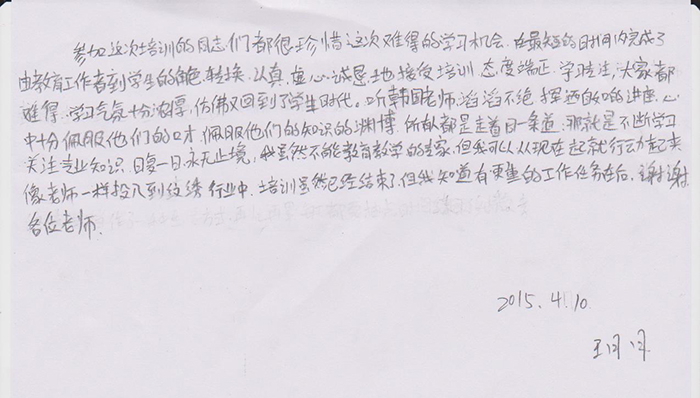 参加这次培训的同志们都很珍惜这次难得的学习机会. 在最短的时间内完成了
由教育工作者到学生的角色转换. 认真. 虚心. 诚恳地接受培训. 态度端正. 学习专注, 大家都
难得. 学习气氛十分浓厚, 仿佛又回到了学生时代. 听韩国老师, 滔滔不绝 挥洒自如的讲座. 心
中十分佩服他们的口才. 佩服他们的知识的渊博. 所有都是走着同一条道. 那就是不断学习
关注专业知识. 日复一日. 永无止境, 我虽然不能教育教学的专家. 但我可以从现在起就行动起来
像老师一样投入到纹绣行业中. 培训虽然已经结束了. 但我知道有更重的工作任务在后. 谢谢
各位老师.
2015. 4. 10